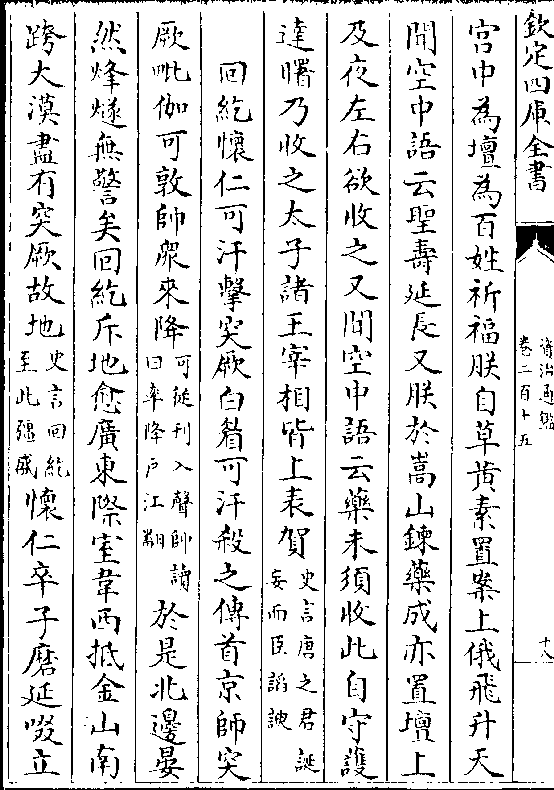 欽定四庫全書
資治通鑑
卷二百十五
十八
宫中為壇為百姓祈福朕自草黄素置案上俄飛升天
聞空中語云聖壽延長又朕於嵩山鍊藥成亦置壇上
及夜左右欲收之又聞空中語云藥未須收此自守護
達曙乃收之太子諸王宰相皆上表賀史言唐之君誕妄而臣謟諛
回紇懷仁可汗擊突厥白眉可汗殺之傳首京師突
厥毗伽可敦帥衆來降可從刋入聲帥讀曰率降戸江翻於是北邊晏
然烽燧無警矣回紇斥地愈廣東際室韋西抵金山南
跨大漠盡有突厥故地史言回紇至此彊盛懷仁卒子磨延啜立